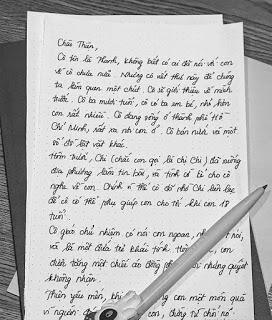 Cháu Thân,
Cô tên là Thanh, không biết có ai đã nói với con
về cô chưa nữa. Nhưng có viết thư này để chúng
ta làm quen một chút. Cô sẽ giới thiệu về mình
trước. Cô ba mươi tuổi, có em bé, nhỏ hơn
con rất nhiều. Cô đang sống ở thành phố Hồ
Chí Minh, rất xa nơi con ở. Cô bán sách và một
số đồ lặt vặt khác.
Hôm trước, Chi (chắc con gọi là chị Chi) đi xuống
địa phương làm tin bài, và tình cờ kể cho cô
nghe về con. Chính vì thế cô đã nhờ Chi liên lạc
để cô có thể phụ giúp con cho tới khi con 18
tuổi.
Cô giáo chủ nhiệm có nói con ngoan,
và là một đứa trẻ khái tính. con
được tặng một chiếc áo đồng phục nhưng quyết
không nhận.
Thân yêu mến, khi con một món quà
vì người con, đừng từ chối nó